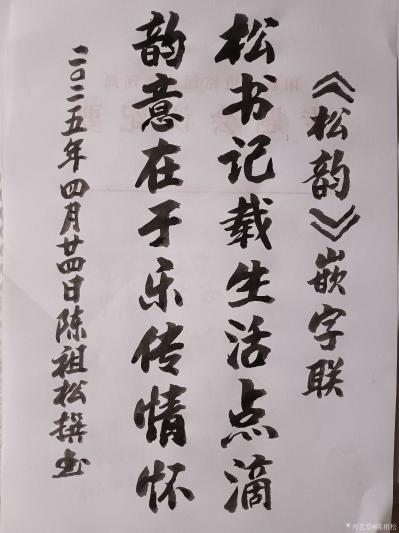 《松韵》嵌字联
松书记载生活点滴
韵意在于乐传情怀
二〇二五年四月廿四日陈祖松撰书